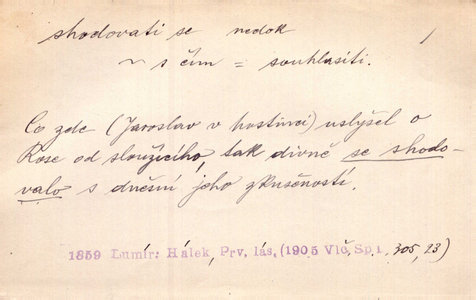 shodovati se nedok 1
~ s čím = souhlasiti.
Co zde (Jaroslav v hostinci) uslyšel o
Rose od sloužícího, tak divně se shodo-
valo s dnešní jeho zkušeností.
1859 Lumír: Hálek, Prv. lás. (1905 Vlč. Sp. 1. 305, 23)